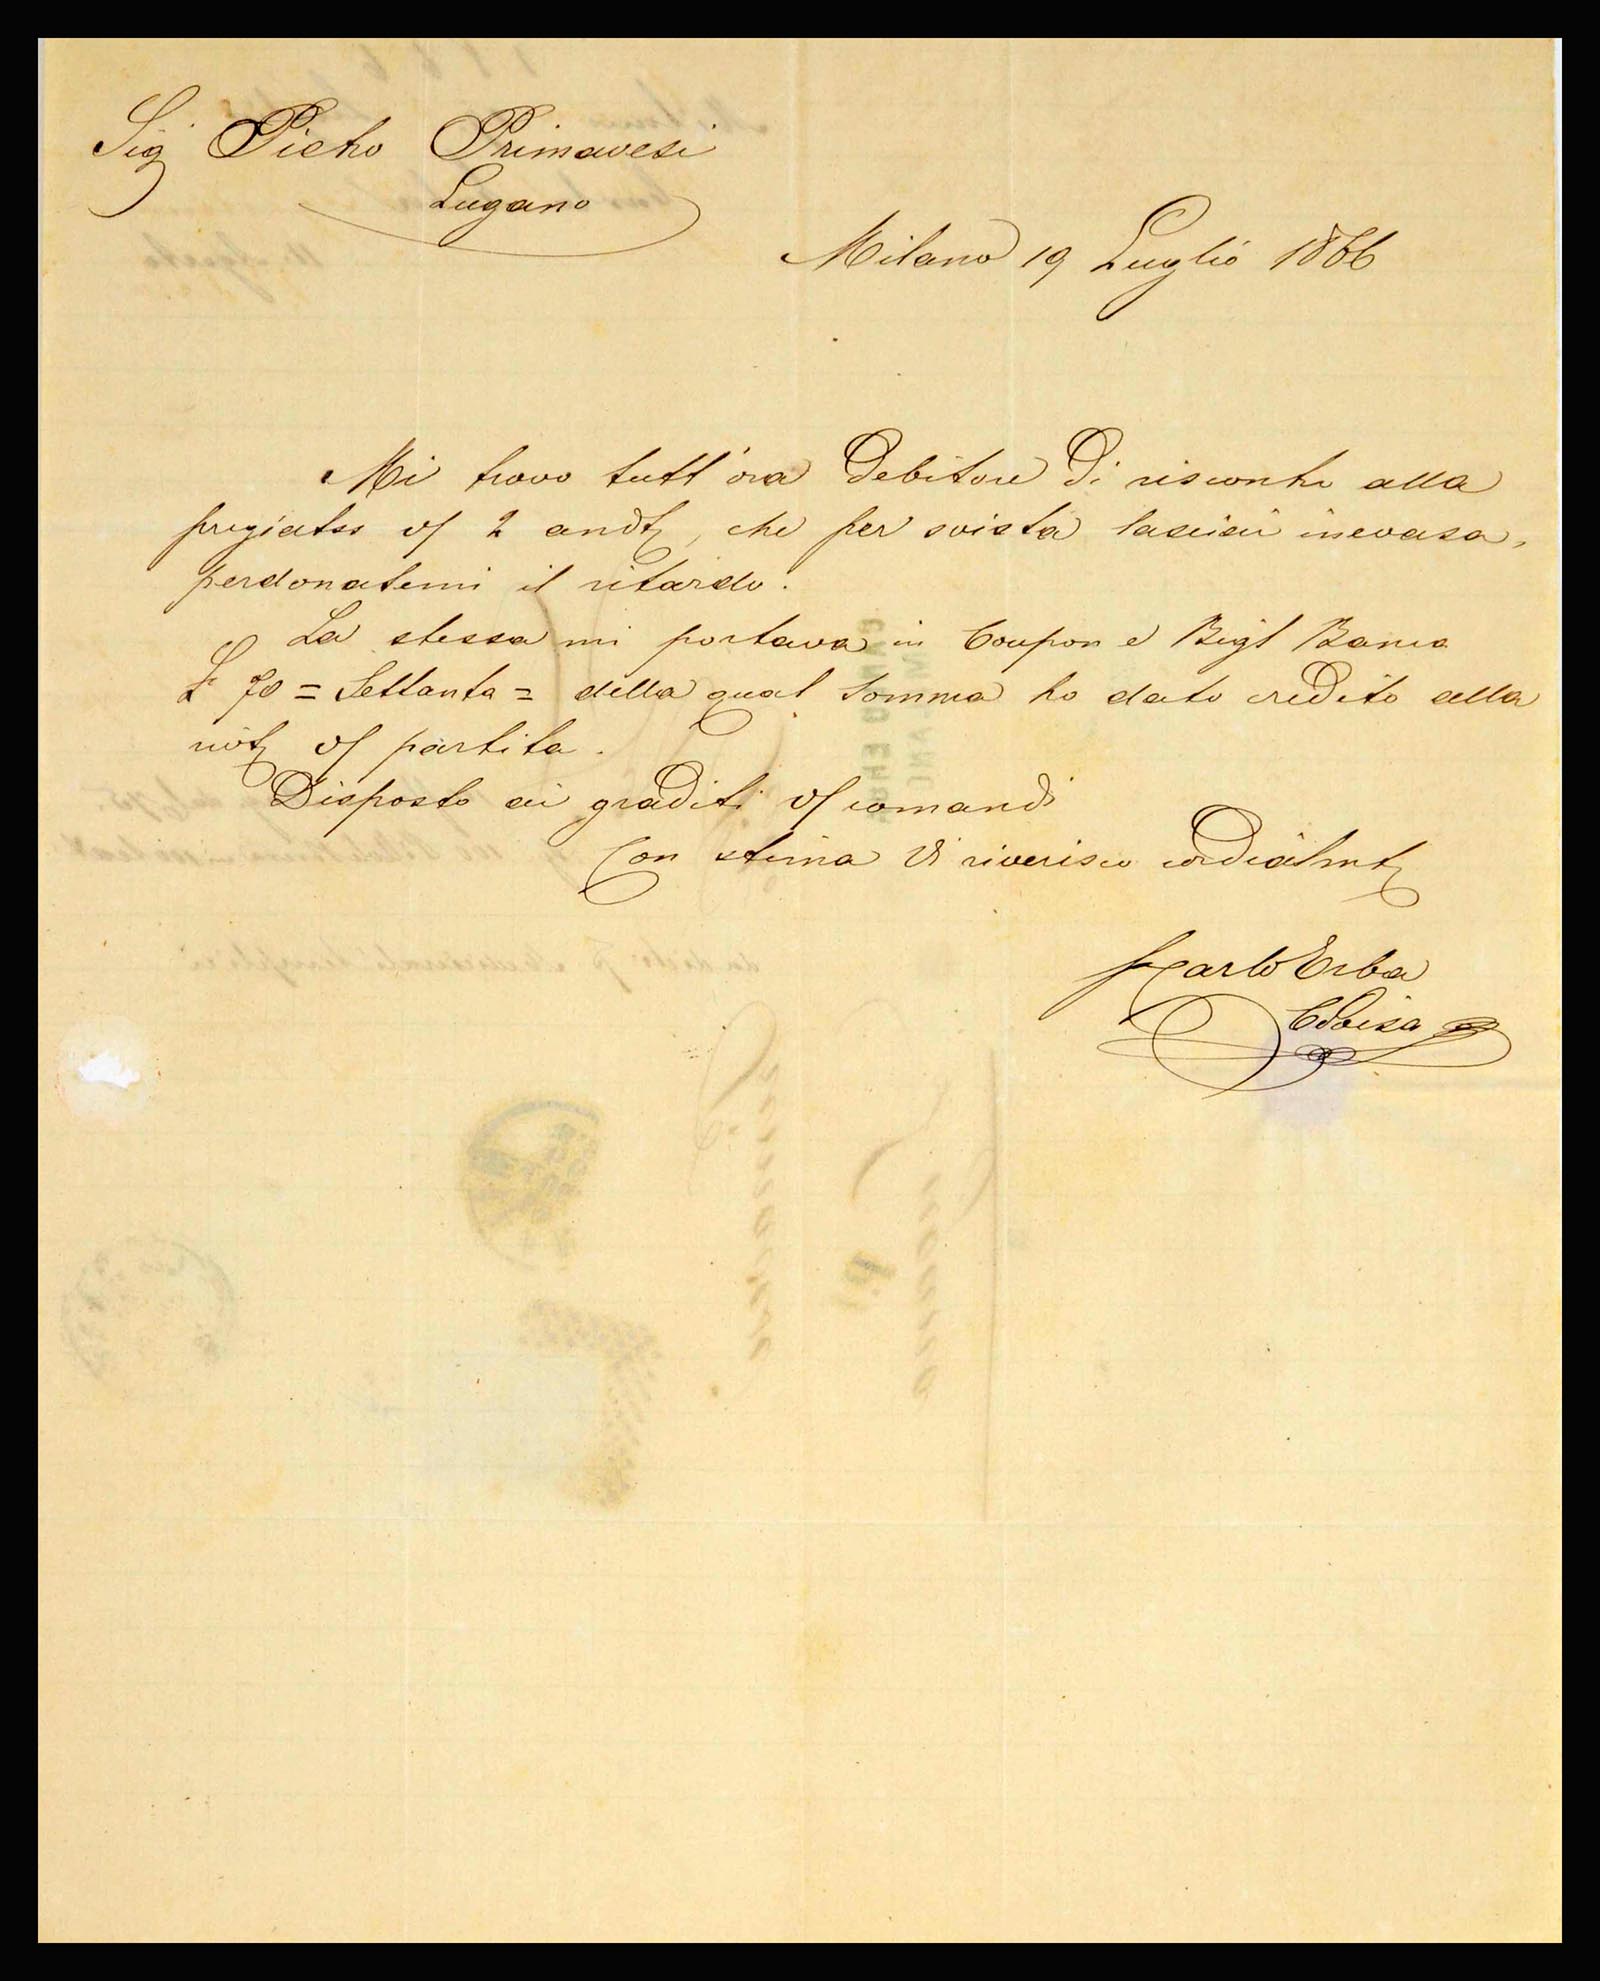 Sig Pietro Primavesi
Lugano
Milano 19 Luglio 1866
Mi trovo tutt'ora Debitore Di riscontro alla
pregiatss vs 2 andte, che per svista lasciai inevasa,
perdonatemi il ritardo.
La stessa mi portava in Coupon e Bigl Banca
£ 70 = Settanta = della qual Somma ho dato credito alla
note vs partita.
Disposto ai graditi vs comandi
Con stima Vi riverisco cordialmte
Carlo Erba